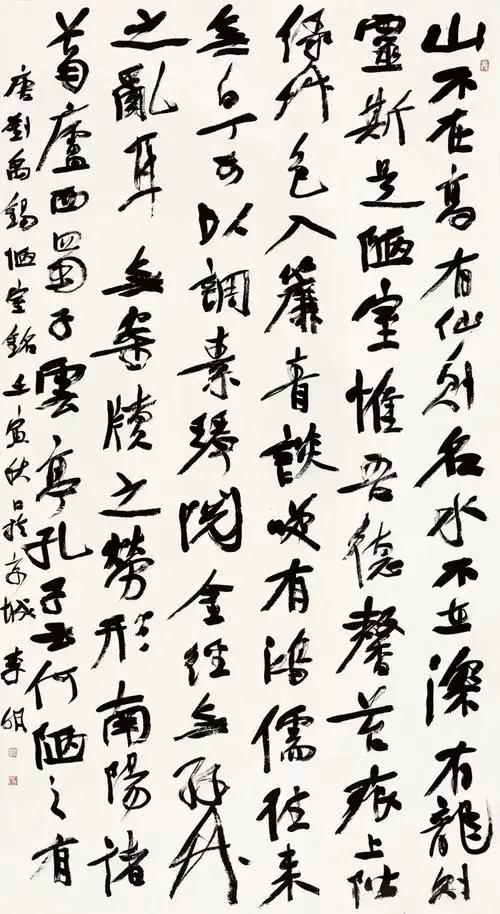 山不在高有仙則名水不在深有龍則
靈斯是陋室惟吾德馨苔痕上階
綠艸色入簾青談咲有鴻儒往來
無白丁可以調素琴閱金經無絲竹
之亂耳無案牘之勞形南陽諸
葛廬西蜀子雲亭孔子云何陋之有
唐劉禹錫陋室銘壬寅秋日於京城李